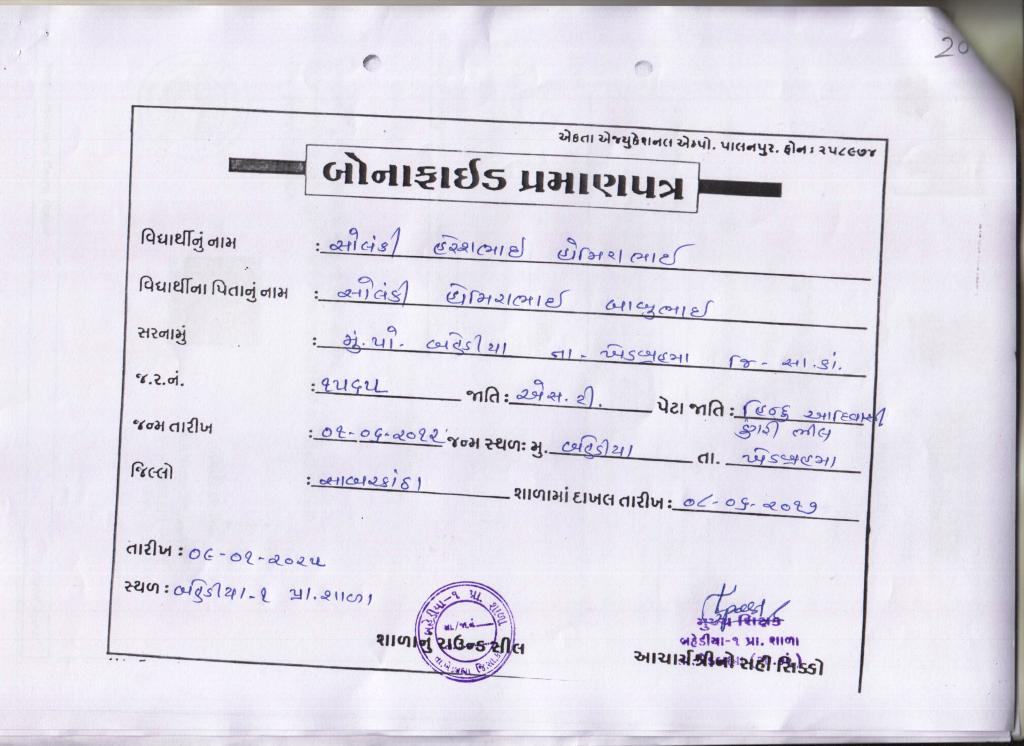 20
એકતા એજ્યુકેશનલ એમ્પો. પાલનપુર. ફોન: ૨૫૮૯૭૪
બોનાફાઈડ પ્રમાણપત્ર
વિદ્યાર્થીનું નામ : સોલંકી હરેશભાઈ હોમિરાભાઈ
વિદ્યાર્થીના પિતાનું નામ : સોલંકી હોમિરાભાઈ બાબુભાઈ
સરનામું : મું.પો. બહેડીયા તા- ખેડબ્રહ્મા જિ- સા.કાં.
જ.ર.નં. : ૧૫૬૫ જાતિ : એસ.ટી. પેટા જાતિ : હિન્દુ આદિવાસી
ડુંગરી ભીલ
જન્મ તારીખ : ૦૧-૦૬-૨૦૧૨ જન્મ સ્થળ: મુ. બહેડીયા તા. ખેડબ્રહ્મા
જિલ્લો : સાબરકાંઠા શાળામાં દાખલ તારીખ : ૦૮-૦૬-૨૦૧૭
તારીખ : ૦૯-૦૧-૨૦૨૫
સ્થળ : બહેડીયા-૧ પ્રા.શાળા
બહેડીયા-૧ પ્રા. શાળા
શાળાનું રાઉન્ડ સીલ
મુખ્ય શિક્ષક
બહેડીયા-૧ પ્રા. શાળા
આચાર્યશ્રીનો સહી સિક્કો